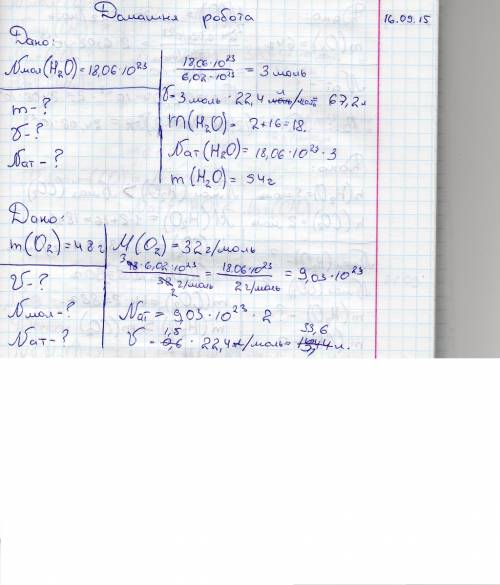 Домашня робота
16.09.15
Дано:
Nмол(H₂O)=18,06·10²³
m-?
V-?
Nат-?
18,06·10²³ / 6,02·10²³ = 3 моль
V=3 моль · 22,4 л/моль = 67,2л
M(H₂O)= 2+16=18.
Nат(H₂O)=18,06·10²³·3
m(H₂O)=54г
Дано:
m(O₂)=48г
V-?
Nмол-?
Nат-?
M(O₂)=32г/моль
48·6,02·10²³ / 32г/моль = 18,06·10²³ / 2г/моль = 9,03·10²³
Nат=9,03·10²³·2
V=1,5·22,4л/моль=33,6 л.